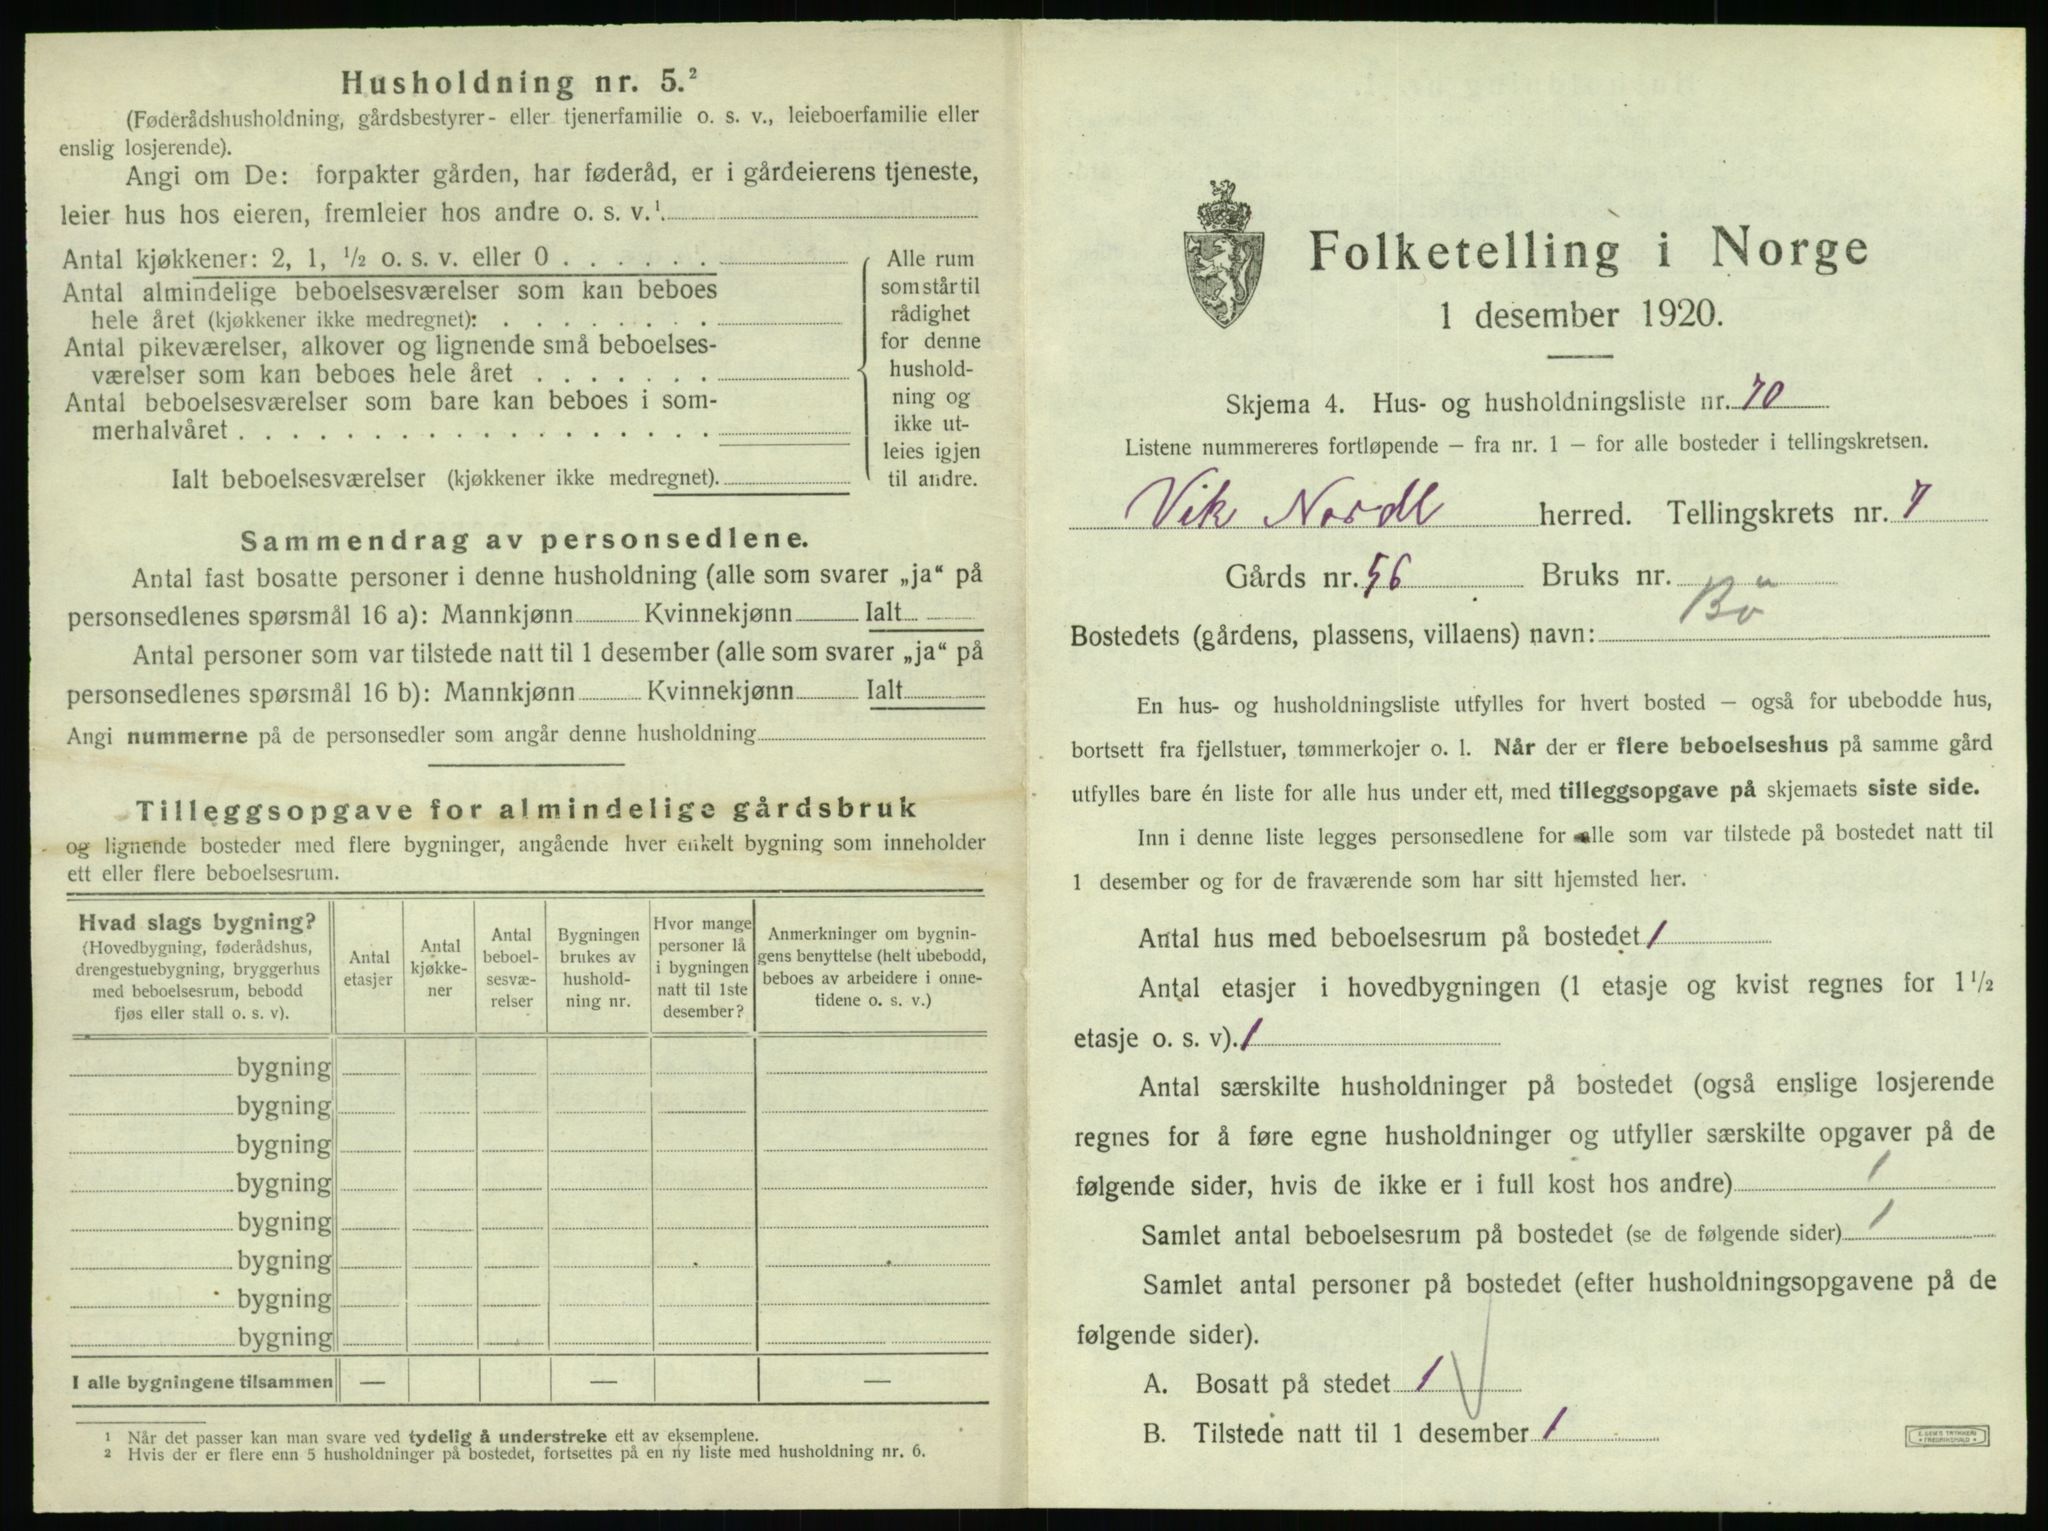 Husholdning nr. 5.²
(Føderådshusholdning, gårdsbestyrer- eller tjenerfamilie o. s. v., leieboerfamilie eller
enslig losjerende).
Angi om De: forpakter gården, har føderåd, er i gårdeierens tjeneste,
leier hus hos eieren, fremleier hos andre o. s. v.¹
Antal kjøkkener: 2, 1, ½ o. s. v. eller 0 . . . . . .
Antal almindelige beboelsesværelser som kan beboes
hele året (kjøkkener ikke medregnet): . . . . . . . .
Antal pikeværelser, alkover og lignende små beboelses-
værelser som kan beboes hele året . . . . . . .
Antal beboelsesværelser som bare kan beboes i som-
merhalvåret . . . . . . . . . . . . . . . . . .
Ialt beboelsesværelser (kjøkkener ikke medregnet).
Alle rum
som står til
rådighet
for denne
hushold-
ning og
ikke ut-
leies igjen
til andre.
Sammendrag av personsedlene.
Antal fast bosatte personer i denne husholdning (alle som svarer „ja“ på
personsedlenes spørsmål 16 a): Mannkjønn Kvinnekjønn Ialt
Antal personer som var tilstede natt til 1 desember (alle som svarer „ja“ på
personsedlenes spørsmål 16 b): Mannkjønn Kvinnekjønn Ialt
Angi nummerne på de personsedler som angår denne husholdning
Tilleggsopgave for almindelige gårdsbruk
og lignende bosteder med flere bygninger, angående hver enkelt bygning som inneholder
ett eller flere beboelsesrum.
Hvad slags bygning?
(Hovedbygning, føderådshus,
drengestuebygning, bryggerhus
med beboelsesrum, bebodd
fjøs eller stall o. s. v).
Antal
etasjer
Antal
kjøkke-
ner
Antal
beboel-
sesvæ-
relser
Bygningen
brukes av
hushold-
ning nr.
Hvor mange
personer lå
i bygningen
natt til 1ste
desember?
Anmerkninger om bygnin-
gens benyttelse (helt ubebodd,
beboes av arbeidere i onne-
tidene o. s. v.)
bygning
bygning
bygning
bygning
bygning
bygning
bygning
bygning
I alle bygningene tilsammen — — —
¹ Når det passer kan man svare ved tydelig å understreke ett av eksemplene.
² Hvis der er flere enn 5 husholdninger på bostedet, fortsettes på en ny liste med husholdning nr. 6.
Folketelling i Norge
1 desember 1920.
Skjema 4. Hus- og husholdningsliste nr. 70
Listene nummereres fortløpende – fra nr. 1 – for alle bosteder i tellingskretsen.
Vik Nordl herred. Tellingskrets nr. 7
Gårds nr. 56 Bruks nr. "
Bostedets (gårdens, plassens, villaens) navn: Bø
En hus- og husholdningsliste utfylles for hvert bosted – også for ubebodde hus,
bortsett fra fjellstuer, tømmerkojer o. l. Når der er flere beboelseshus på samme gård
utfylles bare én liste for alle hus under ett, med tilleggsopgave på skjemaets siste side.
Inn i denne liste legges personsedlene for alle som var tilstede på bostedet natt til
1 desember og for de fraværende som har sitt hjemsted her.
Antal hus med beboelsesrum på bostedet 1
Antal etasjer i hovedbygningen (1 etasje og kvist regnes for 1½
etasje o. s. v). 1
Antal særskilte husholdninger på bostedet (også enslige losjerende
regnes for å føre egne husholdninger og utfyller særskilte opgaver på de
følgende sider, hvis de ikke er i full kost hos andre) 1
Samlet antal beboelsesrum på bostedet (se de følgende sider) 1
Samlet antal personer på bostedet (efter husholdningsopgavene på de
følgende sider).
A. Bosatt på stedet 1
B. Tilstede natt til 1 desember 1